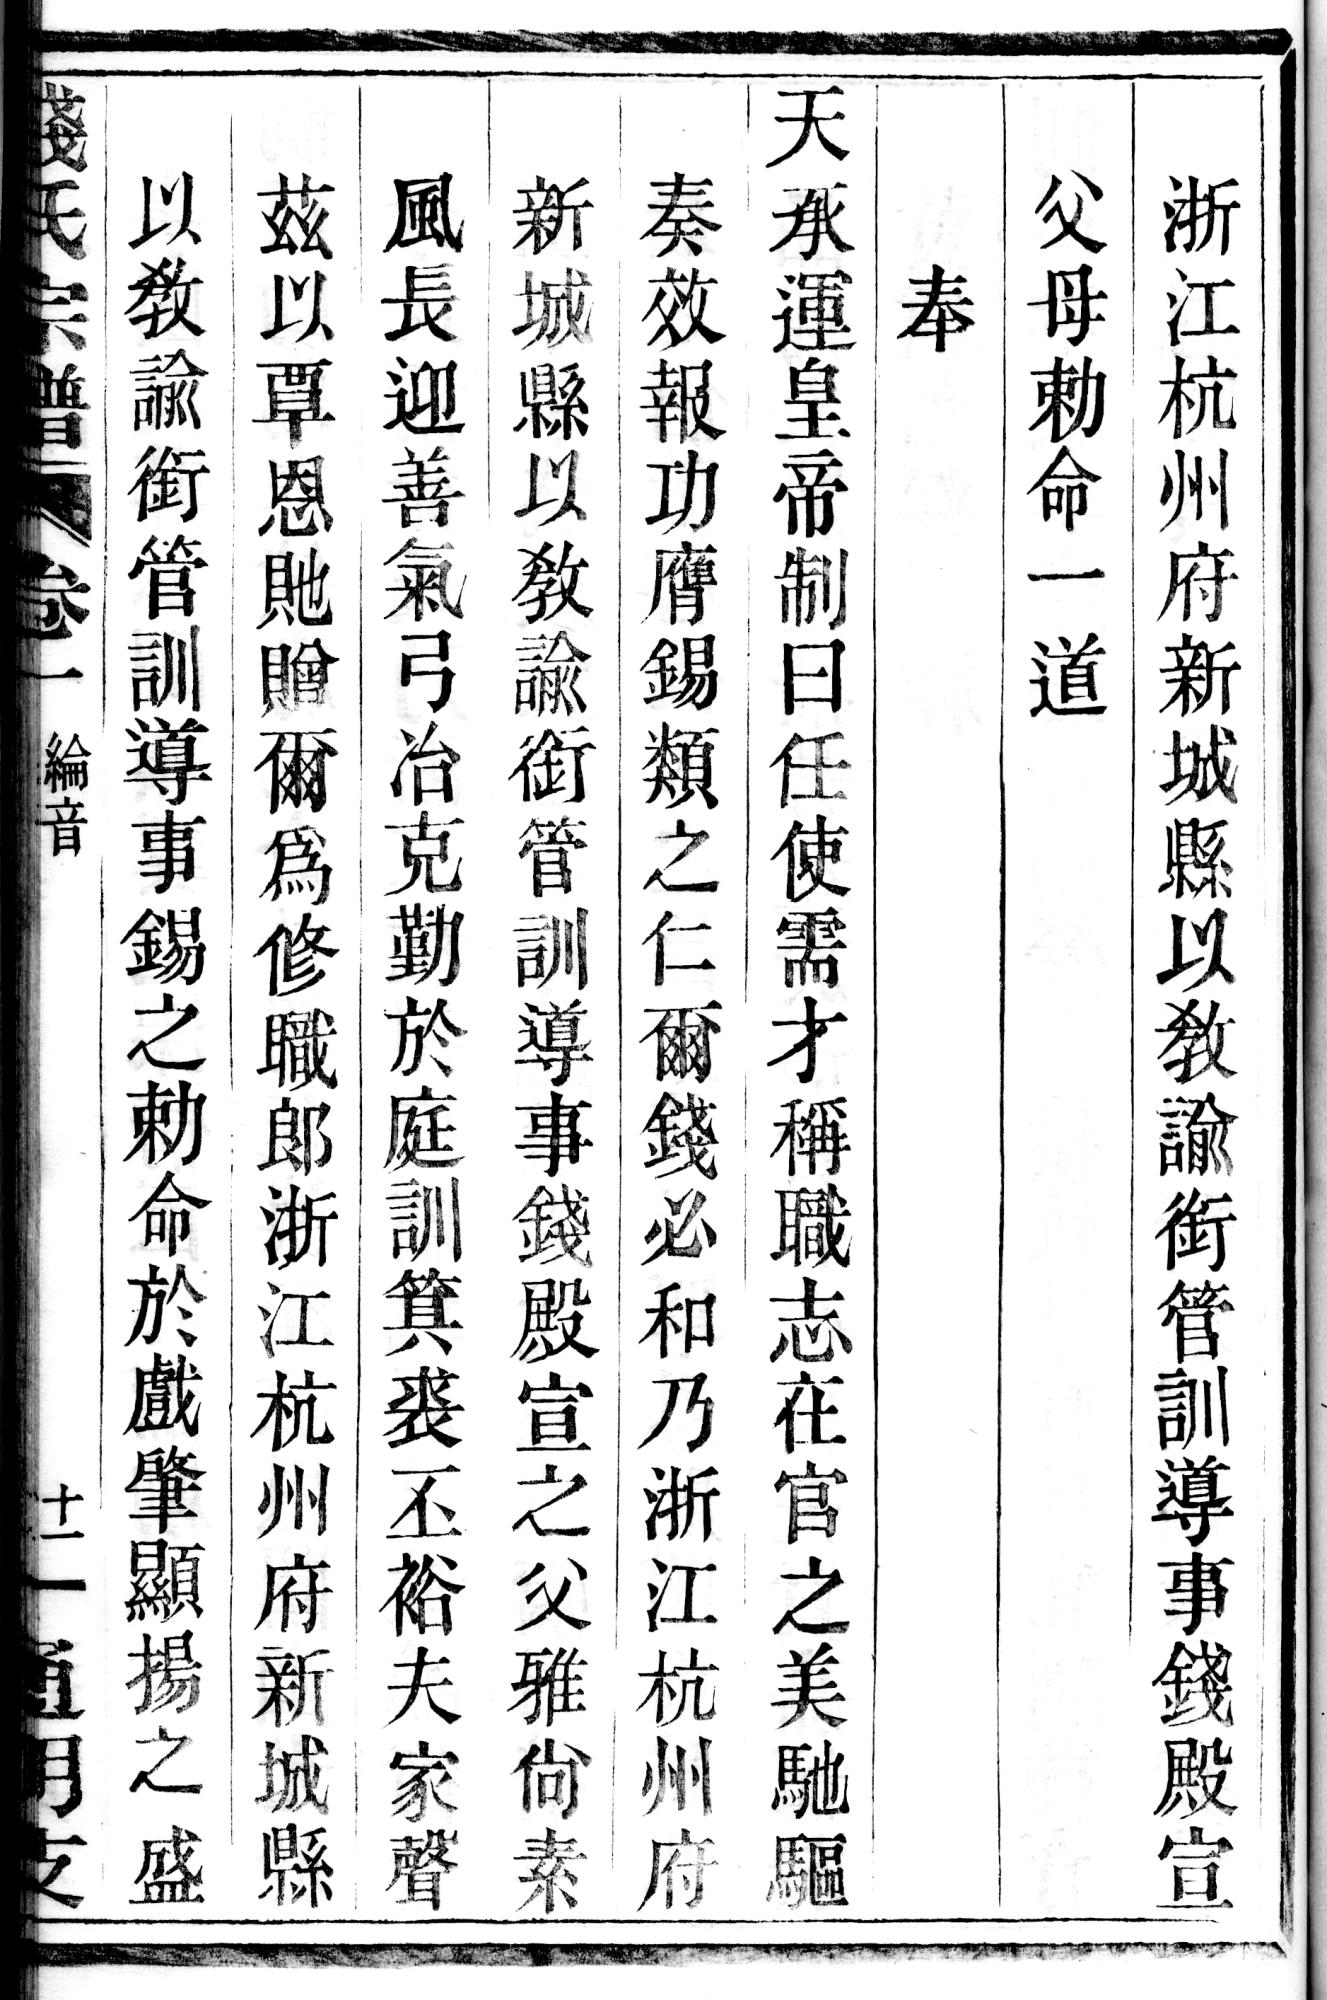 浙江杭州府新城縣以教諭銜管訓導事錢殿宣
父母勅命一道
奉
天承運皇帝制曰任使需才稱職志在官之美馳驅
奏效報功膺錫類之仁爾錢必和乃浙江杭州府
新城縣以教諭銜管訓導事錢殿宣之父雅尙素
風長迎善氣弓冶克勤於庭訓箕裘丕裕夫家聲
茲以覃恩貤贈爾爲修職郎浙江杭州府新城縣
以教諭銜管訓導事錫之勅命於戲肇顯揚之盛
錢氏宗譜 卷一 綸音 十一 通明支